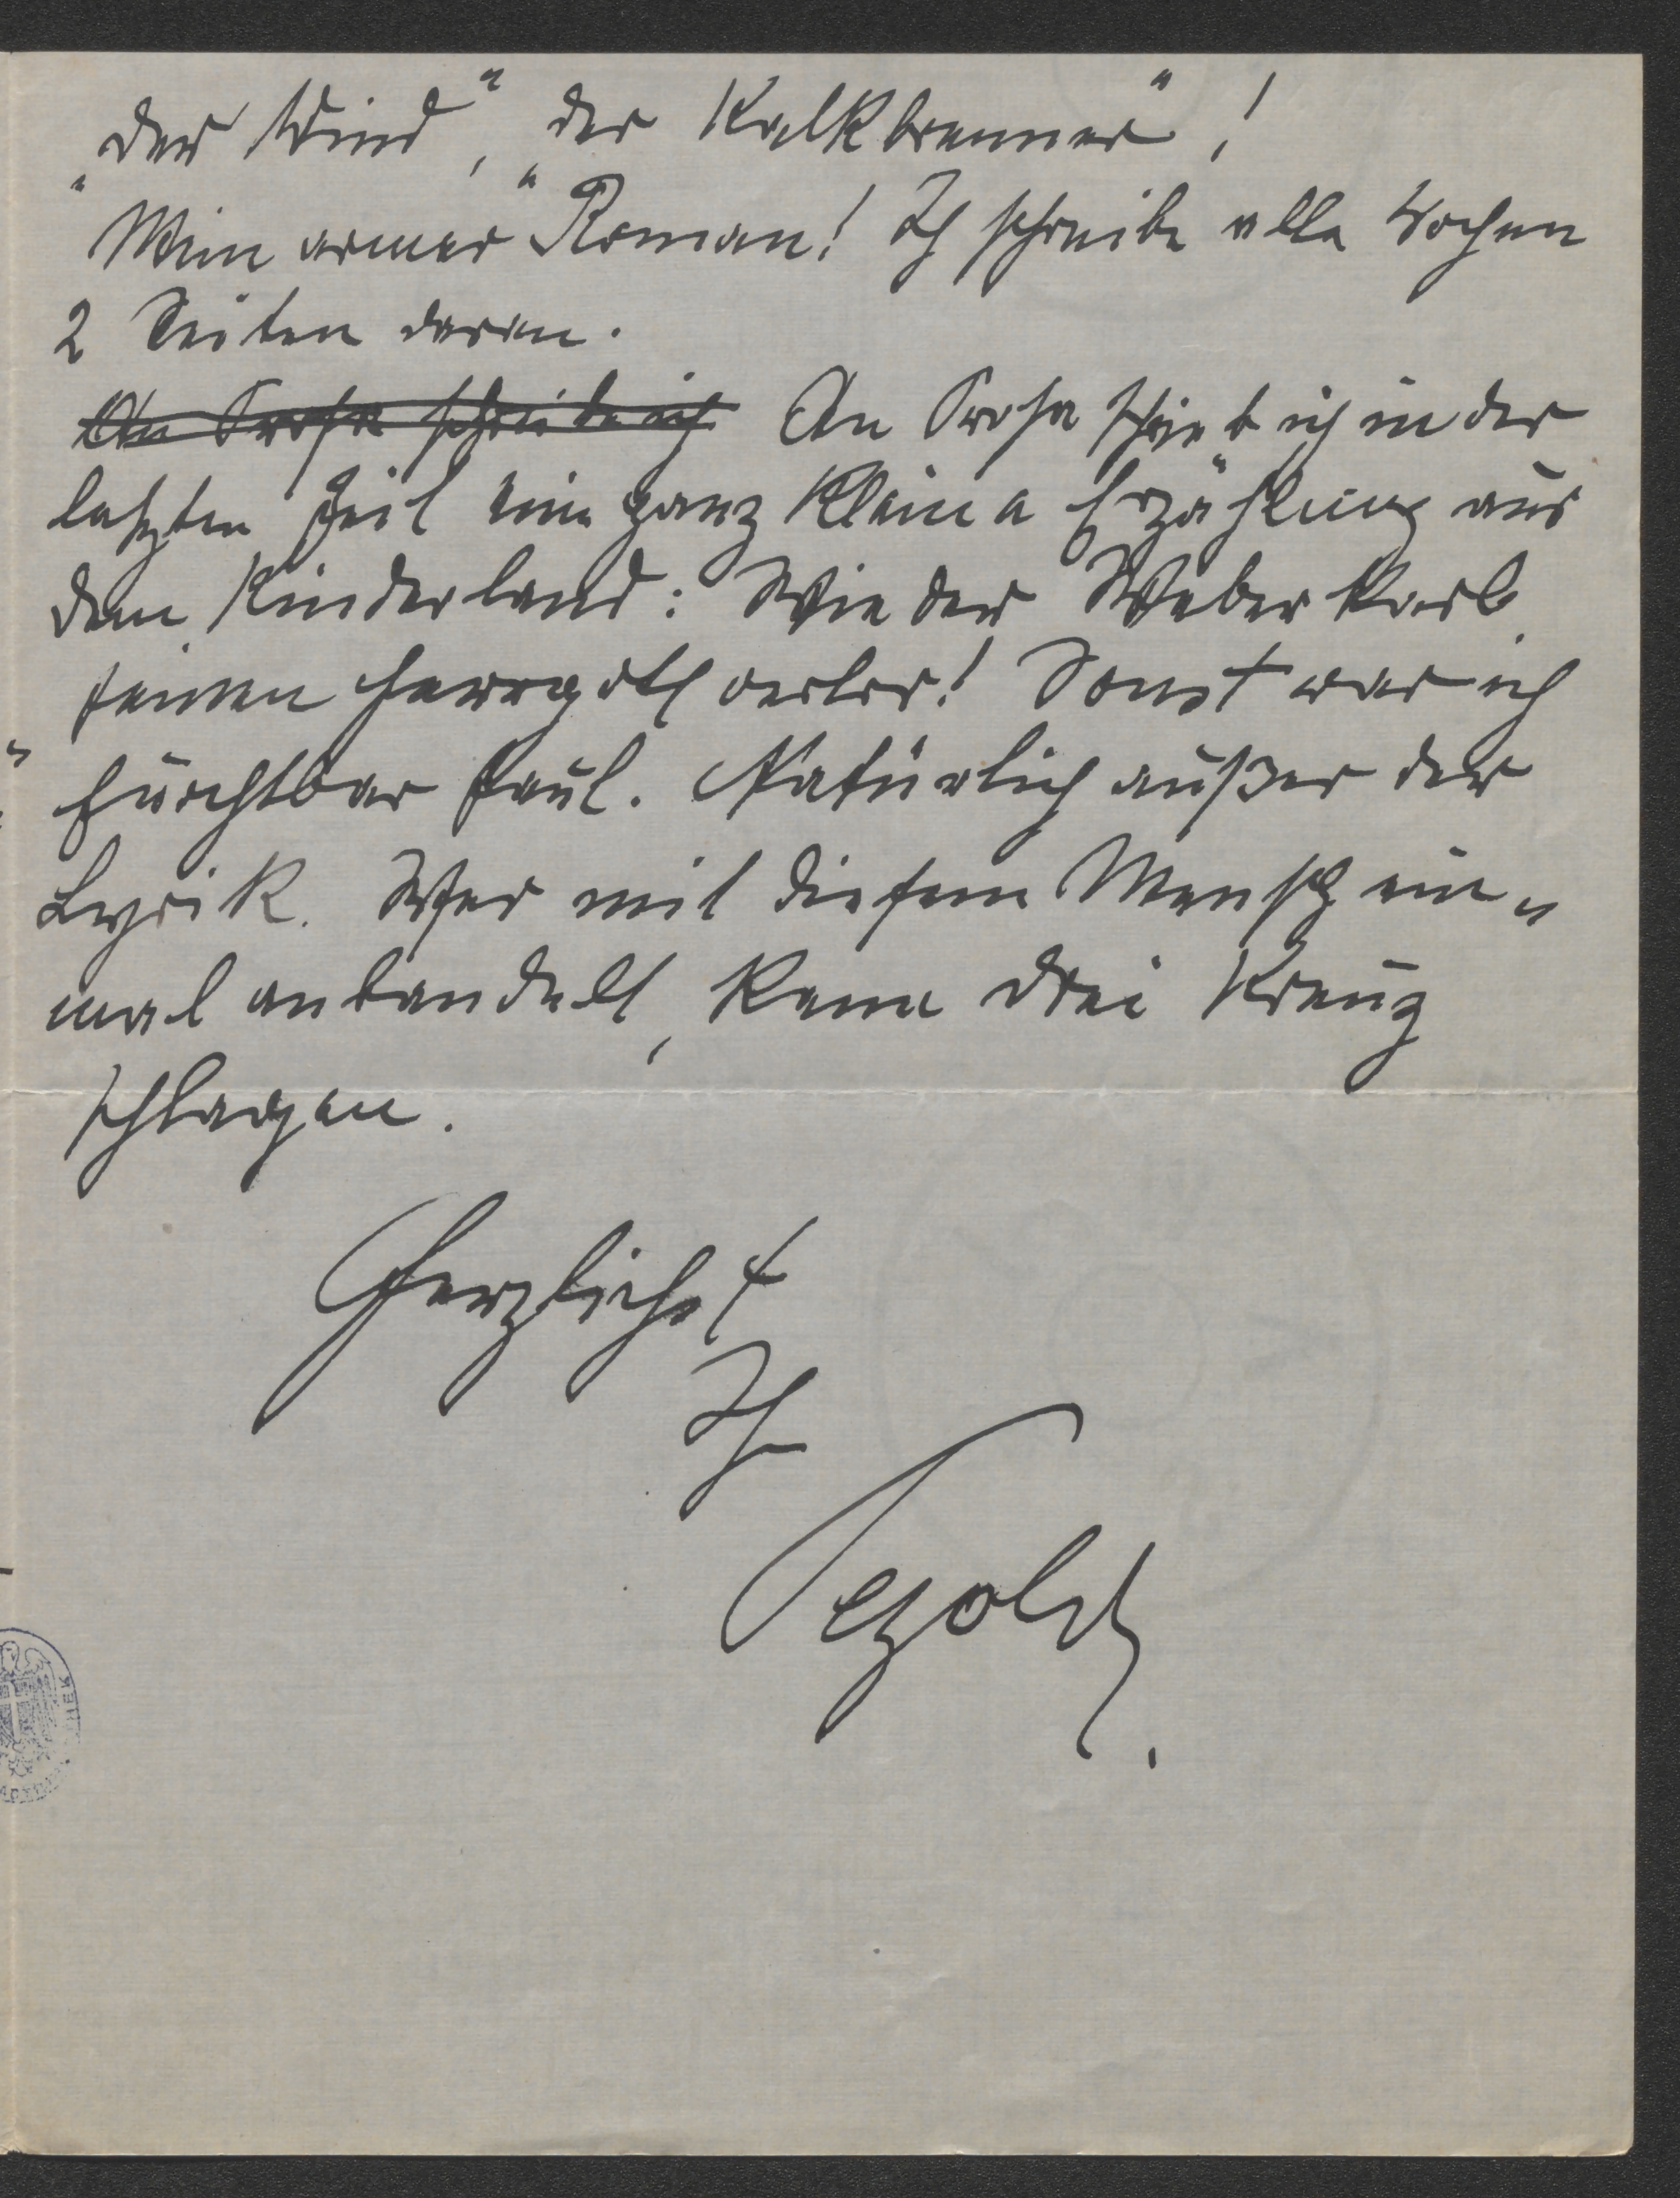 „Der Wind“, „der Kalkbrenner“!
Mein armer Roman! Ich schreibe alle Wochen
2 Seiten daran.
An Prosa schreibe ich An Prosa schrieb ich in der
letzten Zeit eine ganz kleine Erzählung aus
dem Kinderland: Wie der Weber Karl
seinen Herrgott verlor! Sonst war ich
furchtbar faul. Natürlich außer der
Lyrik. Wer mit diesem Mensch ein-
mal anbandelt, kann drei Kreuz
schlagen.
Herzlichst
Ihr
Petzold.